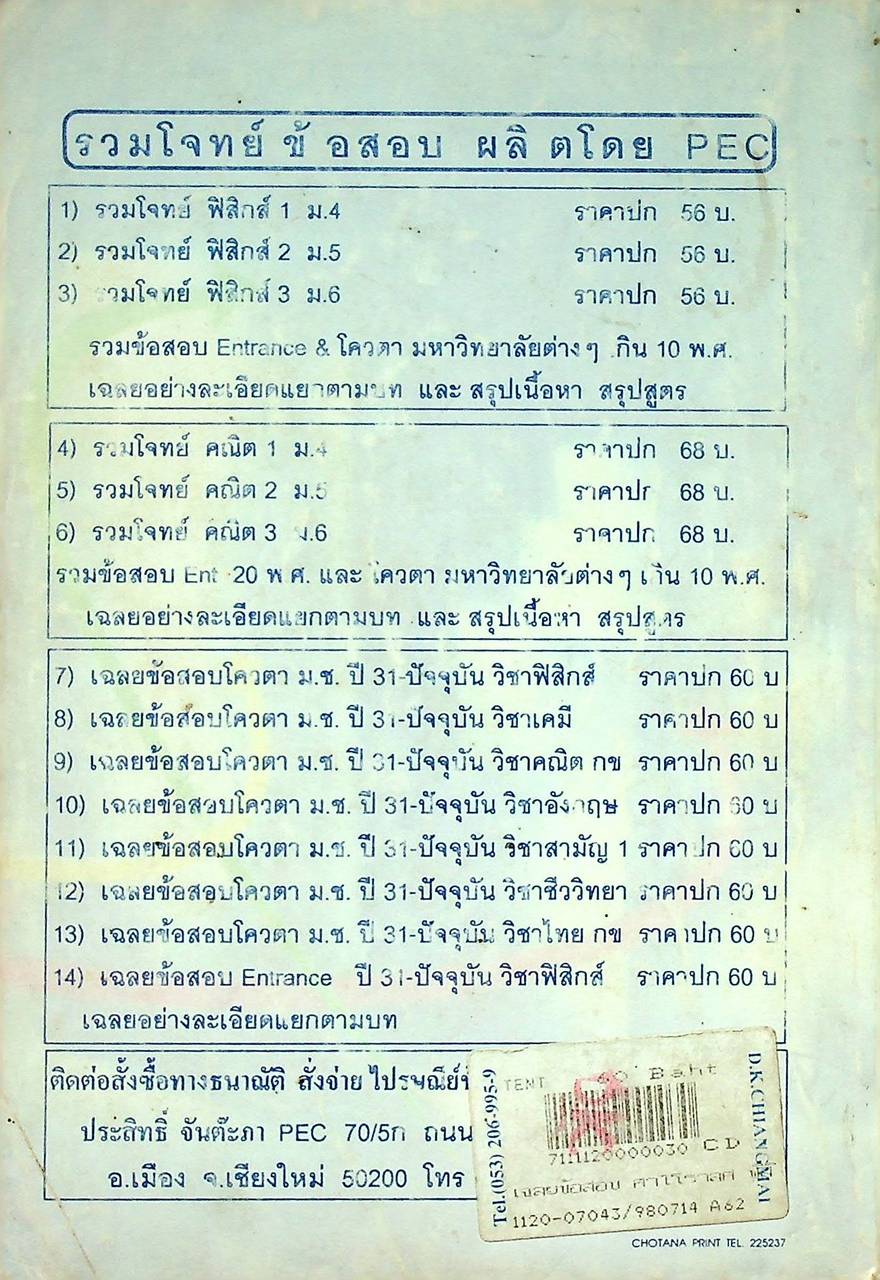 รวมโจทย์ข้อสอบ ผลิตโดย PEC
1) รวมโจทย์ ฟิสิกส์ 1 ม.4 ราคาปก 56 บ.
2) รวมโจทย์ ฟิสิกส์ 2 ม.5 ราคาปก 56 บ.
3) รวมโจทย์ ฟิสิกส์ 3 ม.6 ราคาปก 56 บ.
รวมข้อสอบ Entrance & โควตา มหาวิทยาลัยต่างๆ เกิน 10 พ.ศ.
เฉลยอย่างละเอียดแยกตามบท และ สรุปเนื้อหา สรุปสูตร
4) รวมโจทย์ คณิต 1 ม.4 ราคาปก 68 บ.
5) รวมโจทย์ คณิต 2 ม.5 ราคาปก 68 บ.
6) รวมโจทย์ คณิต 3 ม.6 ราคาปก 68 บ.
รวมข้อสอบ Ent 20 พ.ศ. และ โควตา มหาวิทยาลัยต่างๆ เกิน 10 พ.ศ.
เฉลยอย่างละเอียดแยกตามบท และ สรุปเนื้อหา สรุปสูตร
7) เฉลยข้อสอบโควตา ม.ช. ปี 31-ปัจจุบัน วิชาฟิสิกส์ ราคาปก 60 บ
8) เฉลยข้อสอบโควตา ม.ช. ปี 31-ปัจจุบัน วิชาเคมี ราคาปก 60 บ
9) เฉลยข้อสอบโควตา ม.ช. ปี 31-ปัจจุบัน วิชาคณิต กข ราคาปก 60 บ
10) เฉลยข้อสอบโควตา ม.ช. ปี 31-ปัจจุบัน วิชาอังกฤษ ราคาปก 60 บ
11) เฉลยข้อสอบโควตา ม.ช. ปี 31-ปัจจุบัน วิชาสามัญ 1 ราคาปก 60 บ
12) เฉลยข้อสอบโควตา ม.ช. ปี 31-ปัจจุบัน วิชาชีววิทยา ราคาปก 60 บ
13) เฉลยข้อสอบโควตา ม.ช. ปี 31-ปัจจุบัน วิชาไทย กข ราคาปก 60 บ
14) เฉลยข้อสอบ Entrance ปี 31-ปัจจุบัน วิชาฟิสิกส์ ราคาปก 60 บ
เฉลยอย่างละเอียดแยกตามบท
ติดต่อสั่งซื้อทางธนาณัติ สั่งจ่าย ไปรษณีย์
ประสิทธิ์ จันต๊ะภา PEC 70/5ก ถนน
อ.เมือง จ.เชียงใหม่ 50200 โทร
Tel.(053) 206-995-9
TENT Baht
7111120000030 CD
เฉลยข้อสอบ
1120-07043/980714 A62
D.K.CHIANGMAI
CHOTANA PRINT TEL. 225237